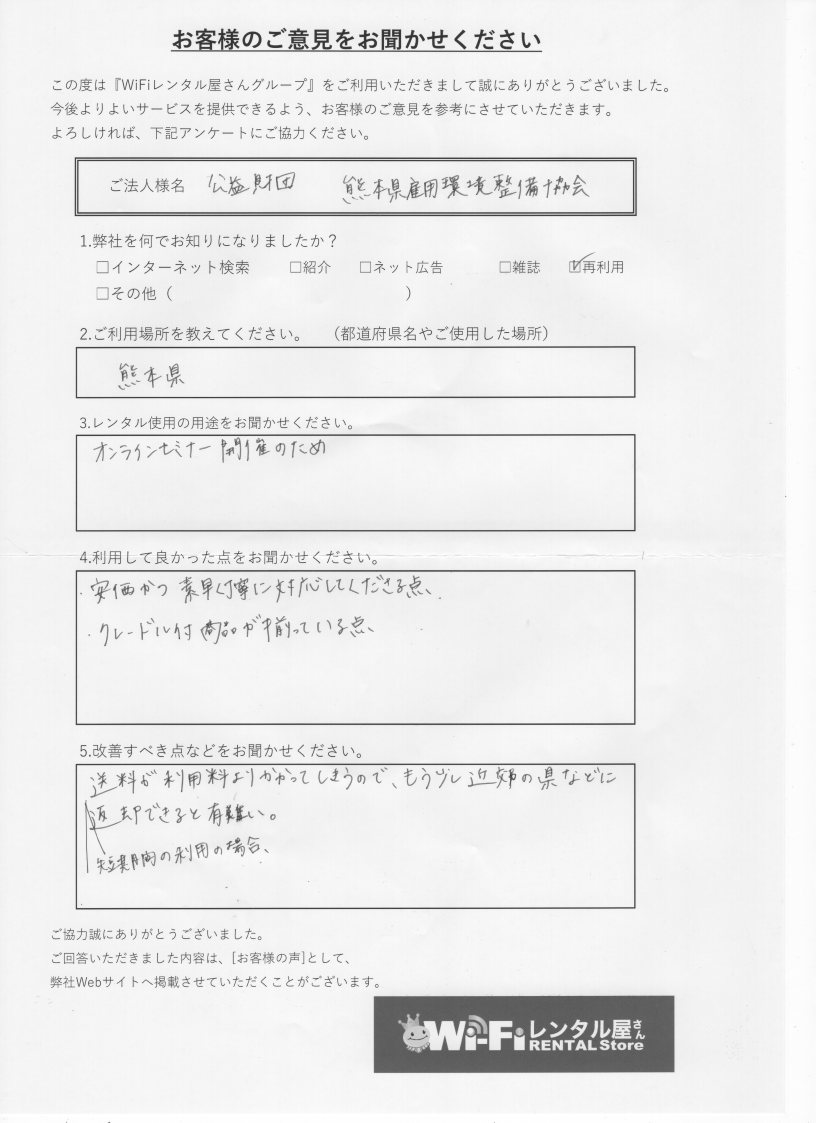 お客様のご意見をお聞かせください
この度は『WiFiレンタル屋さんグループ』をご利用いただきまして誠にありがとうございました。
今後よりよいサービスを提供できるよう、お客様のご意見を参考にさせていただきます。
よろしければ、下記アンケートにご協力ください。
ご法人様名 公益財団 熊本県雇用環境整備協会
1.弊社を何でお知りになりましたか？
□インターネット検索 □紹介 □ネット広告 □雑誌 ☑再利用
□その他（ ）
2.ご利用場所を教えてください。 （都道府県名やご使用した場所）
熊本県
3.レンタル使用の用途をお聞かせください。
オンラインセミナー開催のため
4.利用して良かった点をお聞かせください。
・安価かつ素早く丁寧に対応してくださる点、
・クレードル付商品が揃っている点、
5.改善すべき点などをお聞かせください。
送料が利用料よりかかってしまうので、もう少し近郊の県などに
返却できると有難い。
短期間の利用の場合、
ご協力誠にありがとうございました。
ご回答いただきました内容は、[お客様の声]として、
弊社Webサイトへ掲載させていただくことがございます。
Wi-Fiレンタル屋さん
RENTAL Store